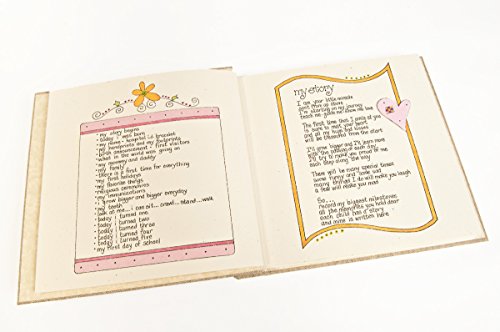 • my story begins
• today i was born
• my name • hospital id bracelet
• my handprints and my footprints
• birth announcement • first visitors
• what in the world was going on
• my mommy and daddy
• my family
• there is a first time for everything
• my first holidays
• my favorite things
• religious ceremonies
• my immunizations
• i grow bigger and bigger everyday
• my teeth
• look at me... i can sit... crawl...stand...walk
• today i turned one
• today i turned two
• today i turned three
• today i turned four
• today i turned five
• my first day of school
my story
I am your little miracle
sent from up above
I'm starting on my journey
teach me guide me show me love
The first time that I smile at you
is sure to melt your heart
and all my first accomplishments
will be treasured from the start
I'll grow bigger and I'll learn more
with the passing of each day
I'll try to make you proud of me
each step along the way
There will be many special times
some funny and some sad
many things I do will make you laugh
a few will make you mad
So...
record my biggest milestones
all the memories you hold dear
each child has a story
and mine is written here